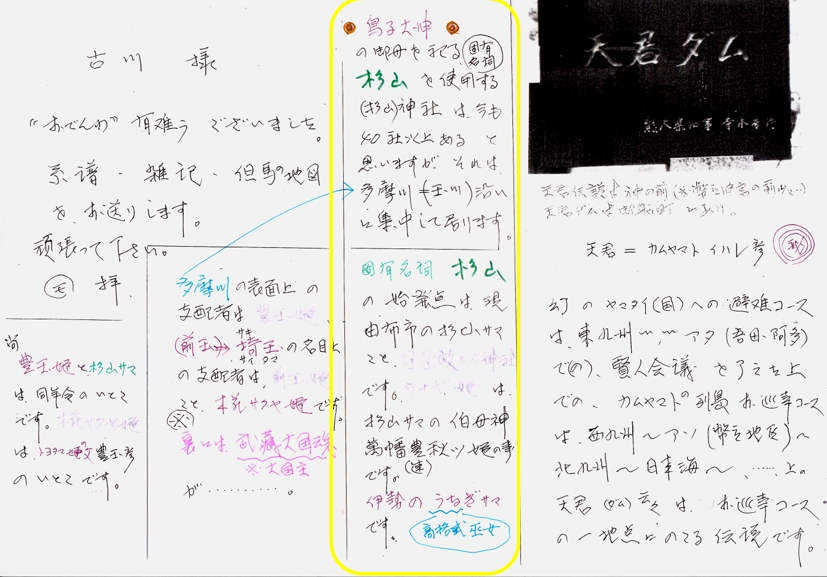 古川 様
"おでんわ" 有難う ございました。
系譜・雑記・但馬の地図
を、お送りします。
頑張って下さい。
拝
尚
豊玉姫と杉山サマ
は、同年令のいとこ
です。
は、豊玉彦
のいとこです。
多摩川の表面上の
支配者は
(前玉)→埼玉の名目上
サキ
サイタマ
の支配者は、
こと、木花サクヤ姫です。
※
裏口は、武蔵大国魂
※大国主
が…………。
鳥子大神
の御母を祀る
固有名詞
杉山を使用する
(杉山)神社は、今も
40社以上あると
思いますが、それは、
多摩川(玉川)沿い
に集中して居ります。
固有名詞 杉山
の始発点は、現
由布市の杉山サマ
こと、
です。 は、
杉山サマの伯母神
萬幡豊秋ツ姫の事
です。
伊勢のうなぎサマ
です。
高格式巫女
天君ダム
熊本県知事
天君ダムは御船町にあり。
天君=カムヤマトイハレ彦
幻のヤマタイ(国)への避難コース
は、東九州〜〜アタ(吾田・阿多)
での、賢人会議を了えた上
での、カムヤマトの列島お巡幸コース
は、西九州〜アソ(幣立地区)〜
北九州〜日本海〜、……上。
天君(ダム)云々は、お巡幸コース
の一地点にのこる伝説です。